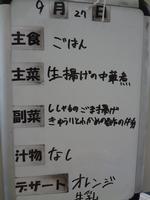 9月27日
主食 ごはん
主菜 生揚げの中華煮
副菜 ししゃものごま揚げ
きゅうりとわかめの酢の物
汁物 なし
デザート オレンジ
牛乳